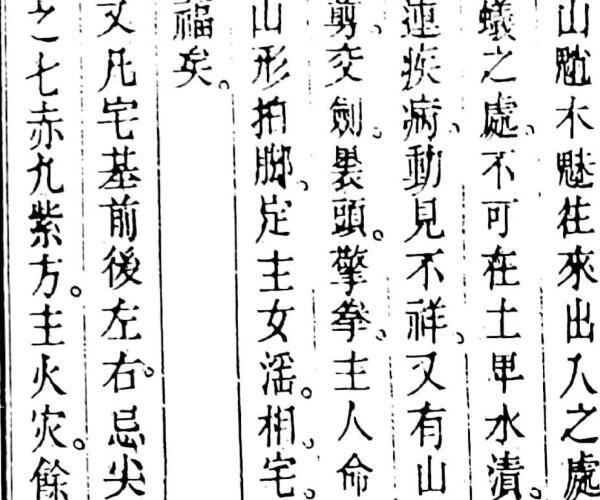 山魈木魅往來出入之處
蟻之處、不可在土卑水漬。
連疾病、動見不祥、又有山
剪、交劍。頭。擎拳、主人命
山形拍脚、定主女滛。相宅、
福矣。
又凡宅基前後左右。忌尖
之七赤九紫方。主火灾。餘